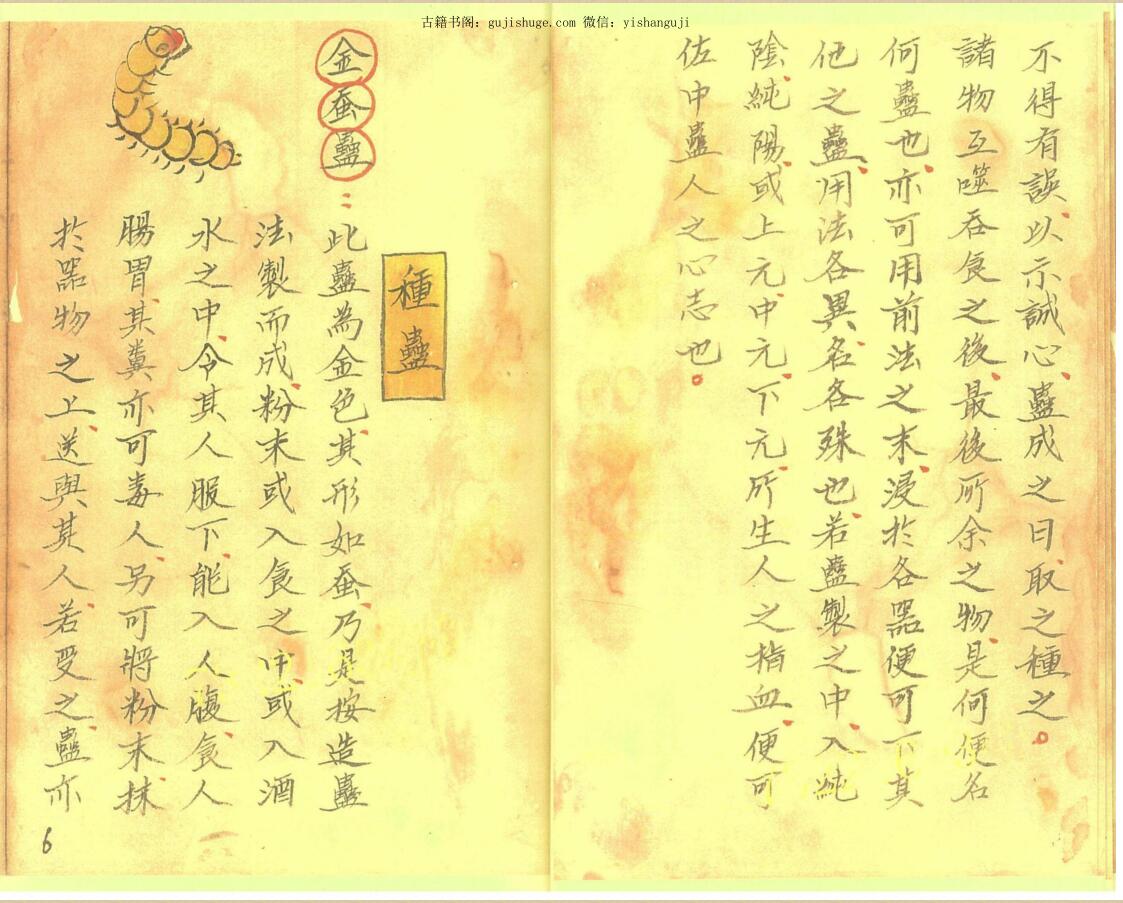 古籍书阁：gujishuge.com 微信：yishanguji
不得有誤以示誠心蠱成之日取之種之。
諸物互噬吞食之後最後所余之物是何便名
何蠱也亦可用前法之末浸於各器便可下其
他之蠱用法各異名各殊也若蠱製之中入純
陰純陽或上元中元下元所生人之指血便可
佐中蠱人之心志也。
種蠱
金蚕蠱：此蠱為金色其形如蚕乃是按造蠱
法製而成粉末或入食之中或入酒
水之中令其人服下能入人腹食人
腸胃其糞亦可毒人另可將粉末抹
於器物之上送與其人若受之蠱亦
6